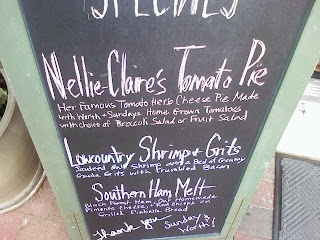 SPECIALS
Nellie Claire's Tomato Pie
Her Famous Tomato Herb Cheese Pie Made
with Worth + Sundays Home Grown Tomatoes
with choice of Broccoli Salad or Fruit Salad
Lowcountry Shrimp + Grits
Sauteed Shrimp over a Bed of Creamy
Gouda Grits with Crumbled Bacon
Southern Ham Melt
Black Forest Ham, Our Homemade
Pimento Cheese, + Red Onions on
Grilled Ciabatta Bread
Thank you Sunday +
Worth!